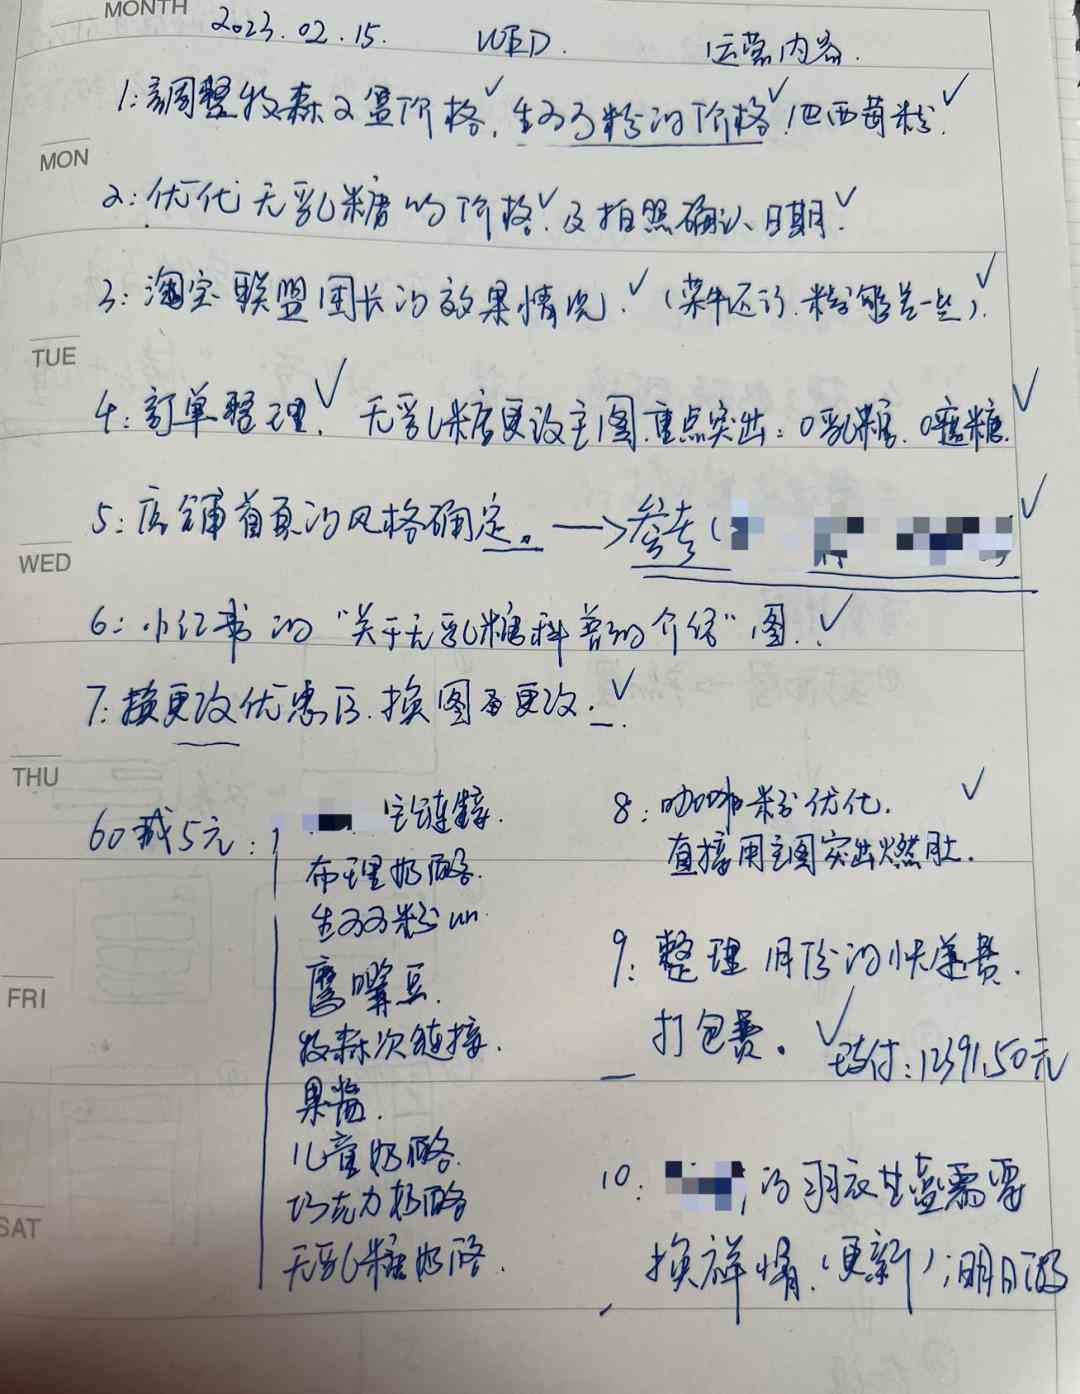 MONTH
2023.02.15. WED. 运营内容.
1:调整牧森又置价格✓,生可可粉的价格✓,巴西莓粉✓.
MON
2:优化无乳糖的价格✓及拍照确认日期✓.
3:淘宝联盟团长的效果情况.✓(菜牛还行.粉能差一些)✓.
TUE
4:訂单整理✓.无乳糖更改主图.重点突出:0乳糖.0蔗糖.✓
5:店铺首页的风格确定。→参考( ✓
WED
6:小红书的"关于无乳糖科普的介绍"图.✓
7:换更改优惠区.换图和更改.✓
THU
60减5元: 主链接.
布理奶酪.
生可可粉
鹰嘴豆.
FRI
牧森次链接.
果酱.
儿童奶酪.
巧克力奶酪
SAT
无乳糖奶酪.
8:咖啡粉优化.✓
直接用主图突出燃肚.
9:整理1月份的快递费.
打包费。✓ 玙付:12391.50元
10: 的羽衣甘蓝需要
换详情.(更新);明日做